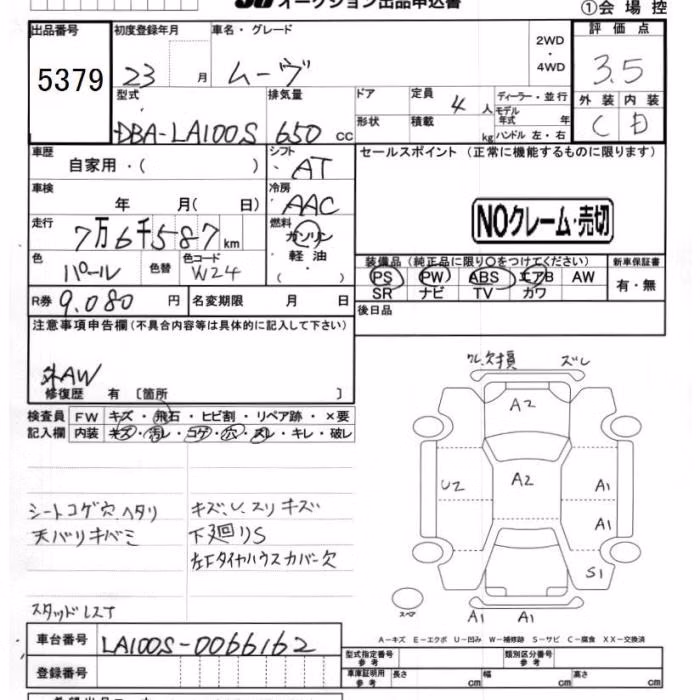 オークション出品申込書
①会場控
出品番号 初度登録年月 車名・グレード 2WD・4WD 評価点
5379 23 月 ムーヴ 3.5
型式 排気量 ドア 定員 4人 ディーラー・並行 外装 内装
DBA-LA100S 650 cc 形状 積載 kg モデル年式 年 ハンドル 左・右 C D
車歴 シフト セールスポイント (正常に機能するものに限ります)
自家用・( ) AT
車検 年 月( 日) 冷房 AAC
NOクレーム・売切
走行 7万6千587km 燃料 ガソリン 軽油 ( )
色 パール 色替 色コード W24
装備品 (純正品に限り○をつけてください) 新車保証書
PS PW ABS エアB AW 有・無
SR ナビ TV カワ
R券 9.080 円 名変期限 月 日
後日品
注意事項申告欄 (不具合内容等は具体的に記入して下さい)
外AW
修復歴 有 〔箇所 〕
検査員記入欄 FW キズ・飛石・ヒビ割・リペア跡・×要
内装 キズ・汚レ・コゲ・穴・スレ・キレ・破レ
クレ欠損 ズレ
A2
U2 A2 A1
A1
S1
スペア A1 A1
シートコゲ穴、ヘタリ キズ、U、スリキズ
天バリキバミ 下廻りS
左Fタイヤハウスカバー欠
スタッドレスT
車台番号 LA100S-0066162
A－キズ E－エクボ U－凹み W－補修跡 S－サビ C－腐食 XX－交換済
登録番号 型式指定番号 参考 類別区分番号 参考
車庫証明用 参考 長さ cm 幅 cm 高さ cm